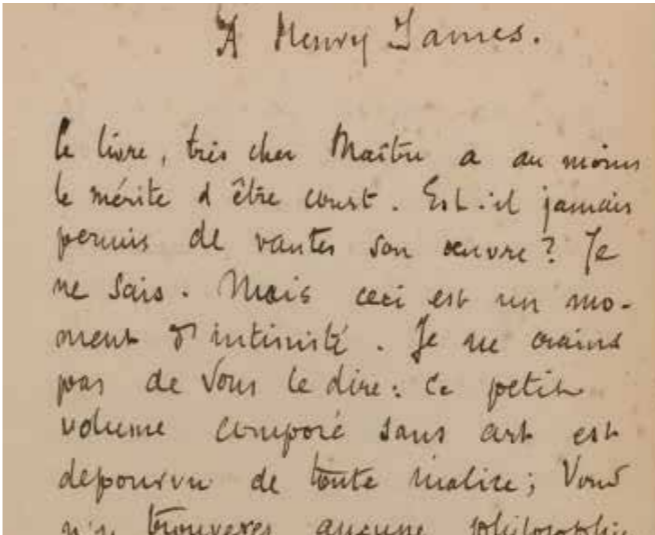 A Henry James.
Ce livre, très cher Maître a au moins
le mérite d être court. Est-il jamais
permis de vanter son œuvre? Je
ne sais. Mais ceci est un mo-
ment d'intimité. Je ne crains
pas de Vous le dire: Ce petit
volume composé sans art est
depourvu de toute malice; Vous
n'y trouverez aucune philosophie